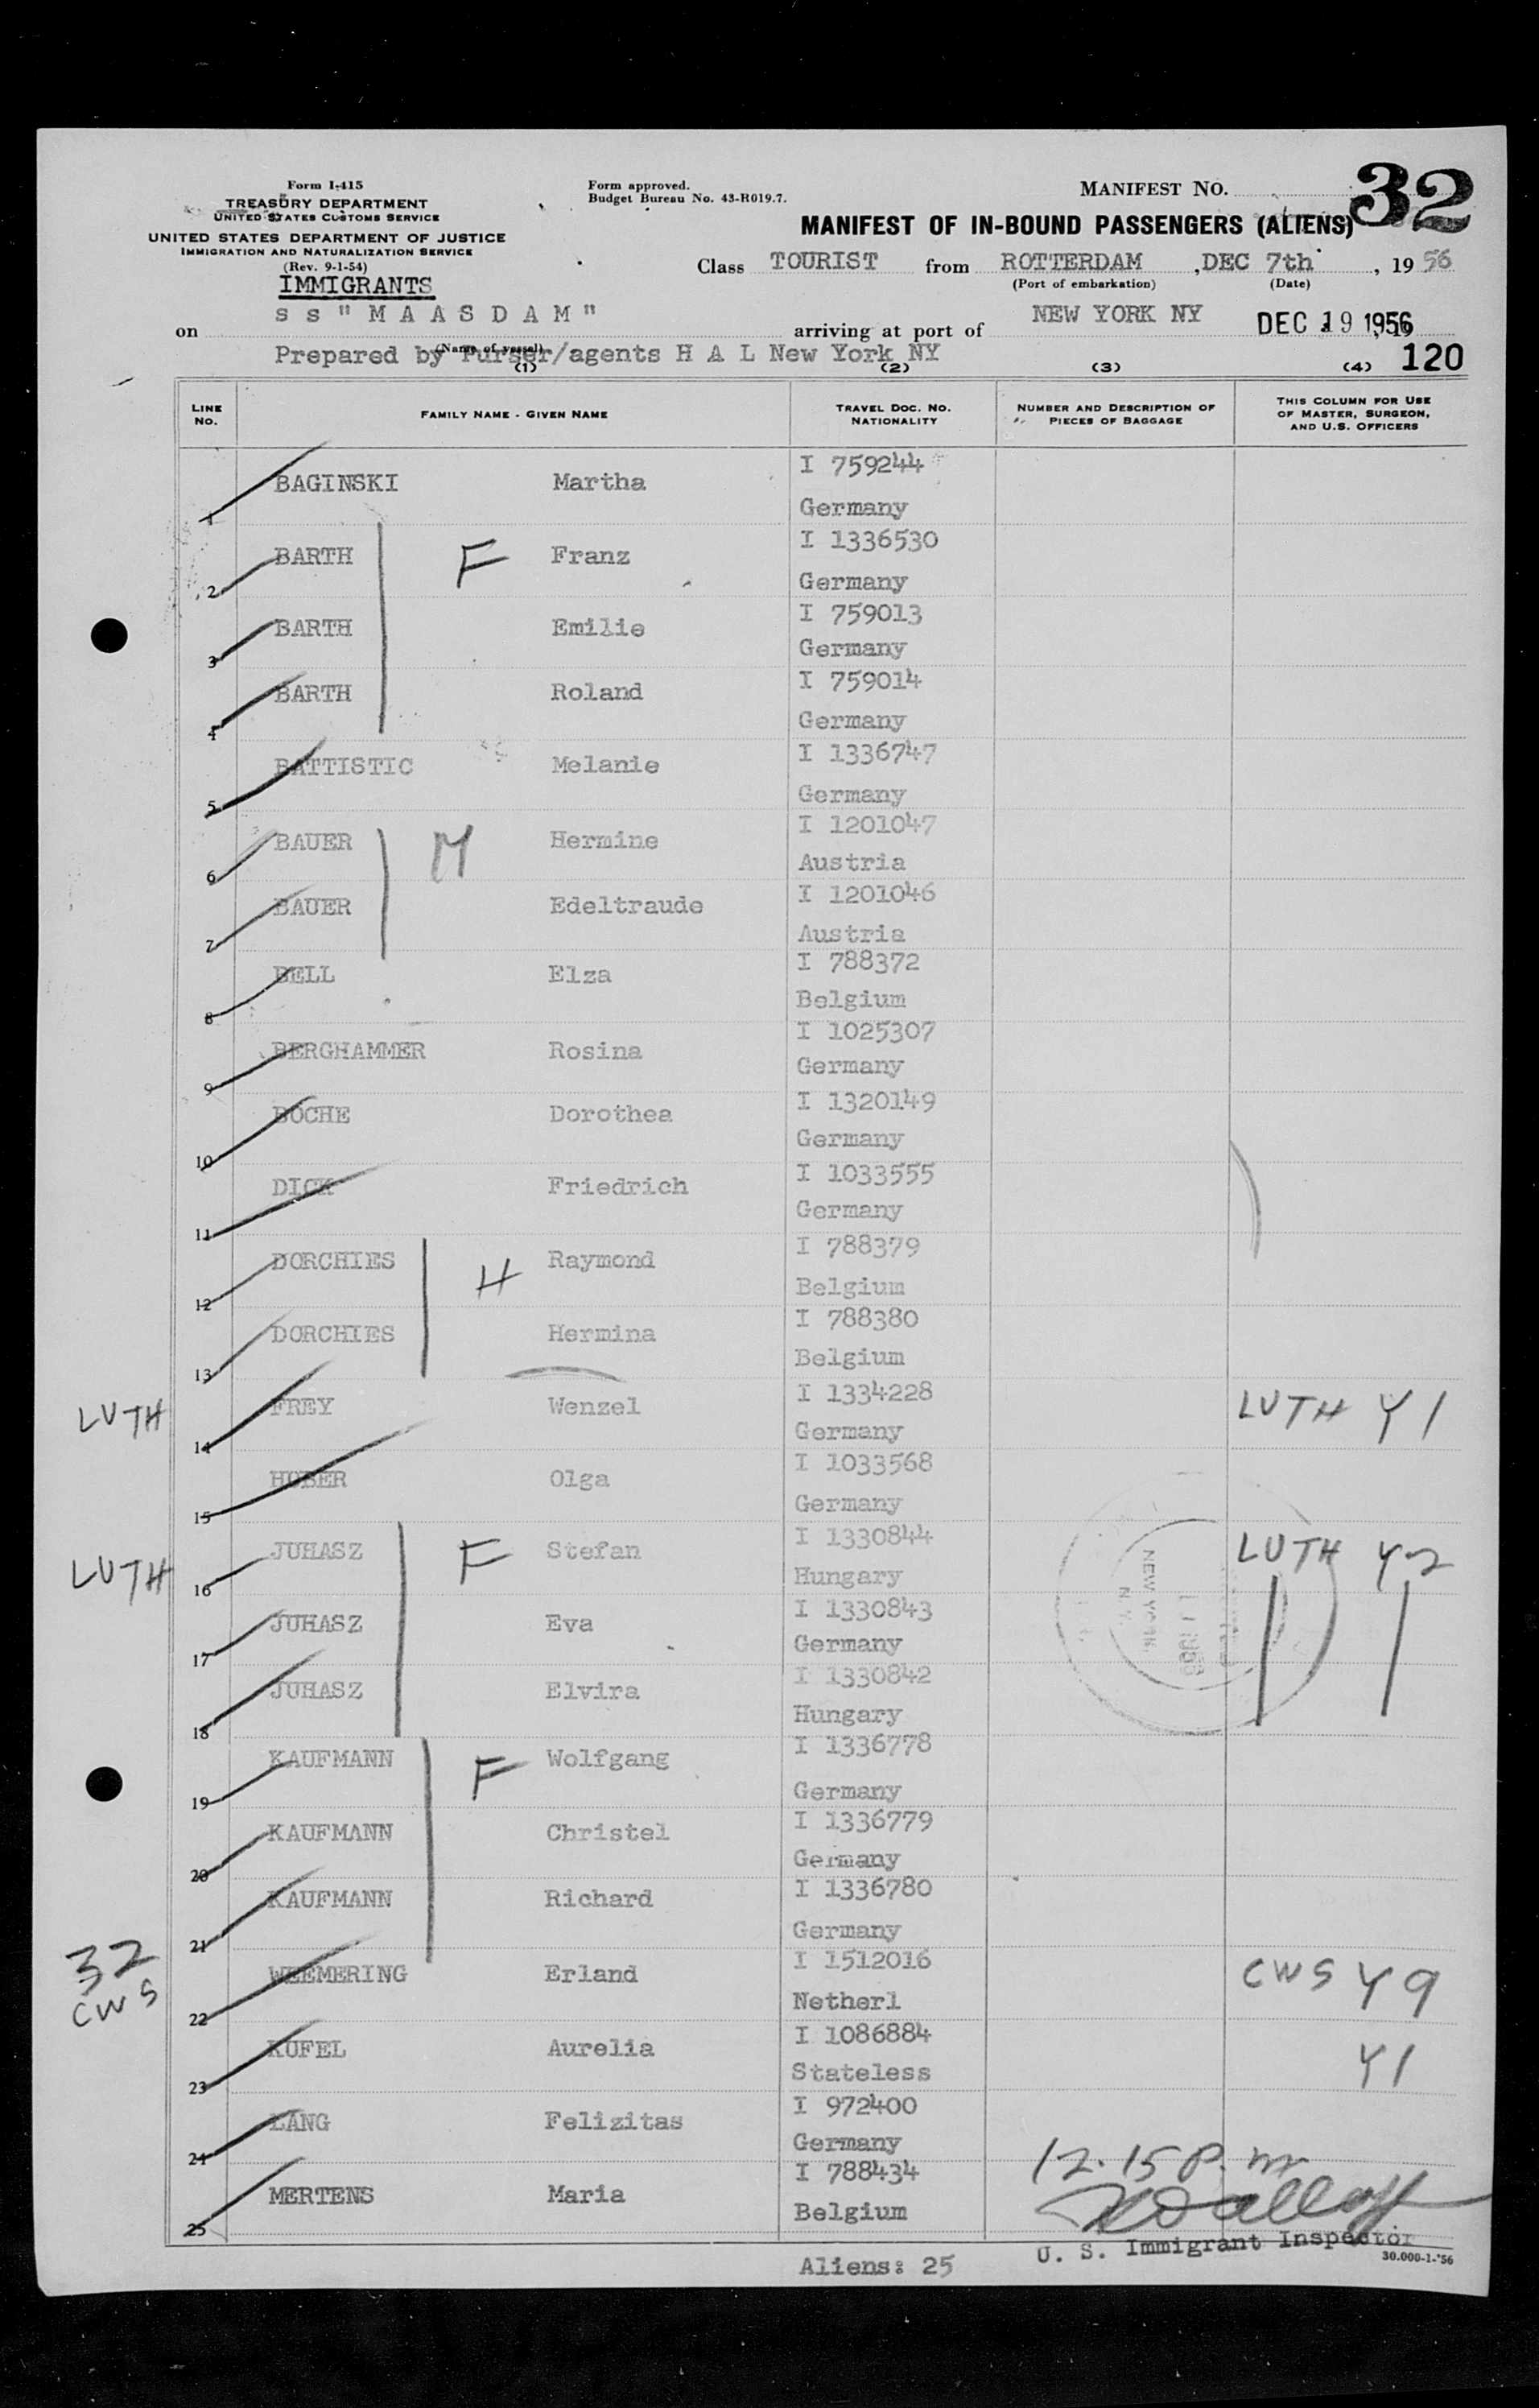 Form I-415
TREASURY DEPARTMENT
UNITED STATES CUSTOMS SERVICE
UNITED STATES DEPARTMENT OF JUSTICE
IMMIGRATION AND NATURALIZATION SERVICE
(Rev. 9-1-54)
IMMIGRANTS
Form approved.
Budget Bureau No. 43-R019.7.
MANIFEST NO. 32
MANIFEST OF IN-BOUND PASSENGERS (ALIENS)
Class TOURIST from ROTTERDAM , DEC 7th , 19 56
(Port of embarkation) (Date)
on s s " M A A S D A M " arriving at port of NEW YORK NY DEC 19 1956
(Name of vessel)
Prepared by Purser/agents H A L New York NY
(1) (2) (3) (4) 120
LINE NO. FAMILY NAME - GIVEN NAME TRAVEL DOC. NO. NATIONALITY NUMBER AND DESCRIPTION OF PIECES OF BAGGAGE THIS COLUMN FOR USE OF MASTER, SURGEON, AND U.S. OFFICERS
1 BAGINSKI Martha I 759244 Germany
2 BARTH F Franz I 1336530 Germany
3 BARTH Emilie I 759013 Germany
4 BARTH Roland I 759014 Germany
5 BATTISTIC Melanie I 1336747 Germany
6 BAUER M Hermine I 1201047 Austria
7 BAUER Edeltraude I 1201046 Austria
8 BELL Elza I 788372 Belgium
9 BERGHAMMER Rosina I 1025307 Germany
10 BOCHE Dorothea I 1320149 Germany
11 DICK Friedrich I 1033555 Germany
12 DORCHIES H Raymond I 788379 Belgium
13 DORCHIES Hermina I 788380 Belgium
LUTH 14 FREY Wenzel I 1334228 Germany LUTH Y1
15 HUBER Olga I 1033568 Germany
LUTH 16 JUHASZ F Stefan I 1330844 Hungary LUTH Y2
17 JUHASZ Eva I 1330843 Germany
18 JUHASZ Elvira I 1330842 Hungary
NEW YORK, N.Y.
19 KAUFMANN F Wolfgang I 1336778 Germany
20 KAUFMANN Christel I 1336779 Germany
21 KAUFMANN Richard I 1336780 Germany
32 CWS 22 WEEMERING Erland I 1512016 Netherl CWS Y9
23 KUFEL Aurelia I 1086884 Stateless Y1
24 LANG Felizitas I 972400 Germany
25 MERTENS Maria I 788434 Belgium
12.15 P.m
U. S. Immigrant Inspector
Aliens: 25
30.000-1-'56